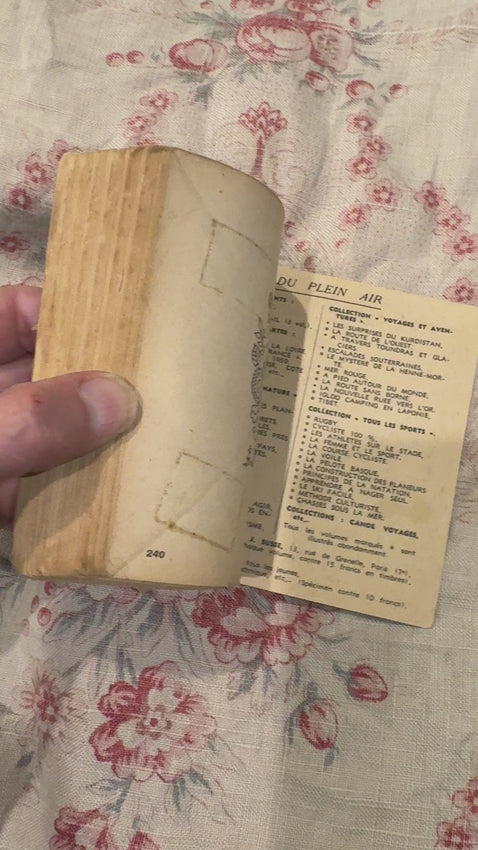 DU PLEIN AIR
NTS :
15 vol.).
ARTES :
LA LOIRE
RANCE »
1959.
ISE, COTE
etc...
NATURE »
PLAN-
RETS
LES
PRES
PAYS,
TES.
AGIR,
EN...
ISME,
COLLECTION « VOYAGES ET AVEN-
TURES ».
* LES SURPRISES DU KURDISTAN.
* LA ROUTE DE L'OUEST.
* A TRAVERS TOUNDRAS ET GLA-
CIERS.
* ESCALADES SOUTERRAINES.
* LE MYSTERE DE LA HENNE-MOR-
TE.
* MER ROUGE.
* A PIED AUTOUR DU MONDE.
* LA ROUTE SANS BORNE.
* LA NOUVELLE RUEE VERS L'OR.
* IGLOO CAMPING EN LAPONIE.
* TIBET
COLLECTION « TOUS LES SPORTS ».
* RUGBY
* CYCLISTE 100 %.
* LES ATHLETES SUR LE STADE.
* LA FEMME ET LE SPORT.
* LA COURSE CYCLISTE.
* LA VOILE
* LA PELOTE BASQUE.
* LA CONSTRUCTION DES PLANEURS
* PRINCIPES DE LA NATATION.
* APPRENDRE A NAGER SEUL.
* LE SKI FACILE.
* METHODE CULTURISTE.
* CHASSES SOUS LA MER.
COLLECTIONS : CANOE VOYAGES,
etc...
Tous les volumes marqués * sont
illustrés abondamment.
SUSSE, 13, rue de Grenelle, Paris (7e),
haque volume, contre 15 francs en timbres).
ous les jeunes,
etc... (Spécimen contre 10 francs).
240